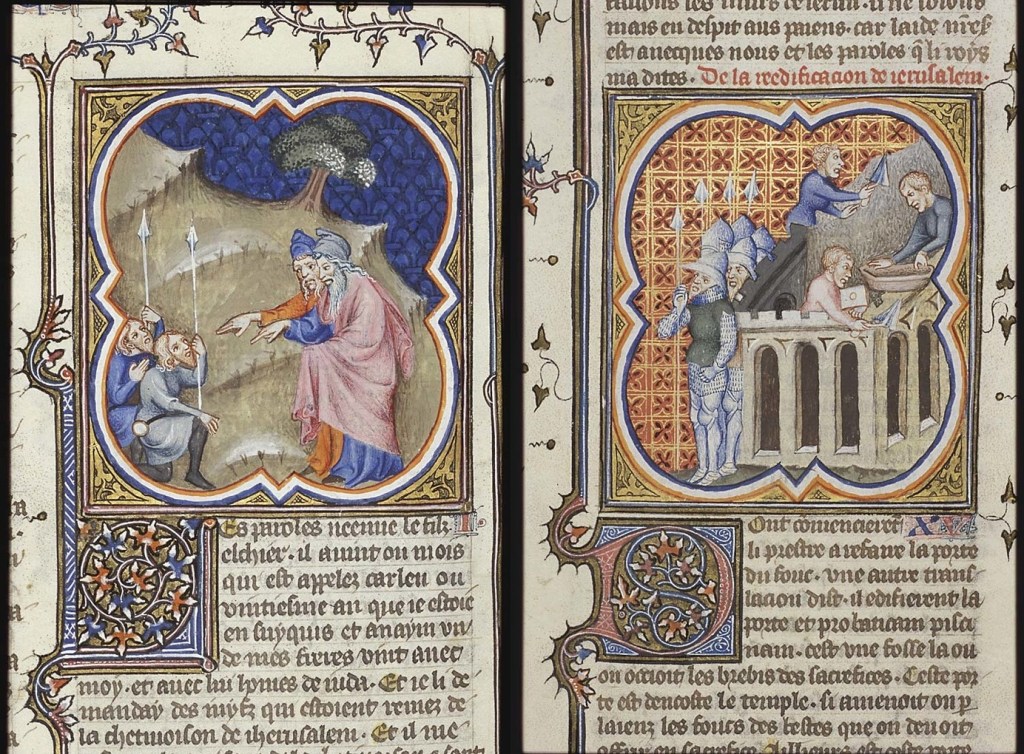 Es paroles neemie le filz
elchier. il auint ou mois
qui est appelez casleu ou
vintiesme an que ie estoie
en suyquis et anaym vn
de mes freres vint auec
moy. et auec lui homes de iuda. Et ie li de
manday des iuyfz qui estoient remez de
la chetiuoison de iherusalem. Et il me
mais en despit aus paiens. car laide nre
est auecques nous et les paroles q li roys
ma dites. De la reedificacion de ierusalem.
Ont comencierent
li prestre a refaire la porte
du fouc. vne autre trans
lacion dist. il edifierent la
porte et probaticam pisci
nam. cest vne fosse la ou
on occioit les brebis des sacrefices. Ceste por
te est dencoste le temple. si amenoit on p
laienz les foucs des bestes que on deuoit
offrir ou sacrefice